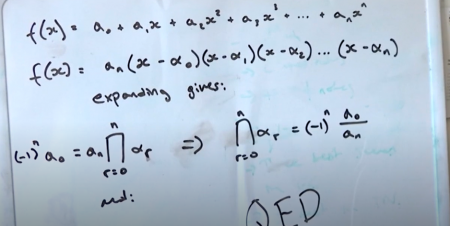 f(x) = a₀ + a₁x + a₂x² + a₃x³ + ... + aₙxⁿ
f(x) = aₙ(x - α₀)(x - α₁)(x - α₂)...(x - αₙ)
expanding gives:
(-1)ⁿ a₀ = aₙ ∏ⁿᵣ₌₀ αᵣ ⇒ ∏ⁿᵣ₌₀ αᵣ = (-1)ⁿ a₀/aₙ
QED